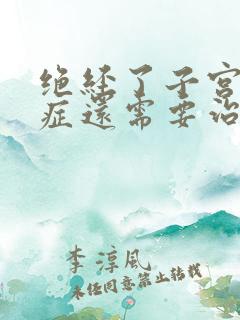 绝经了子宫
症还需要治
李淳风
未经同意禁止转载